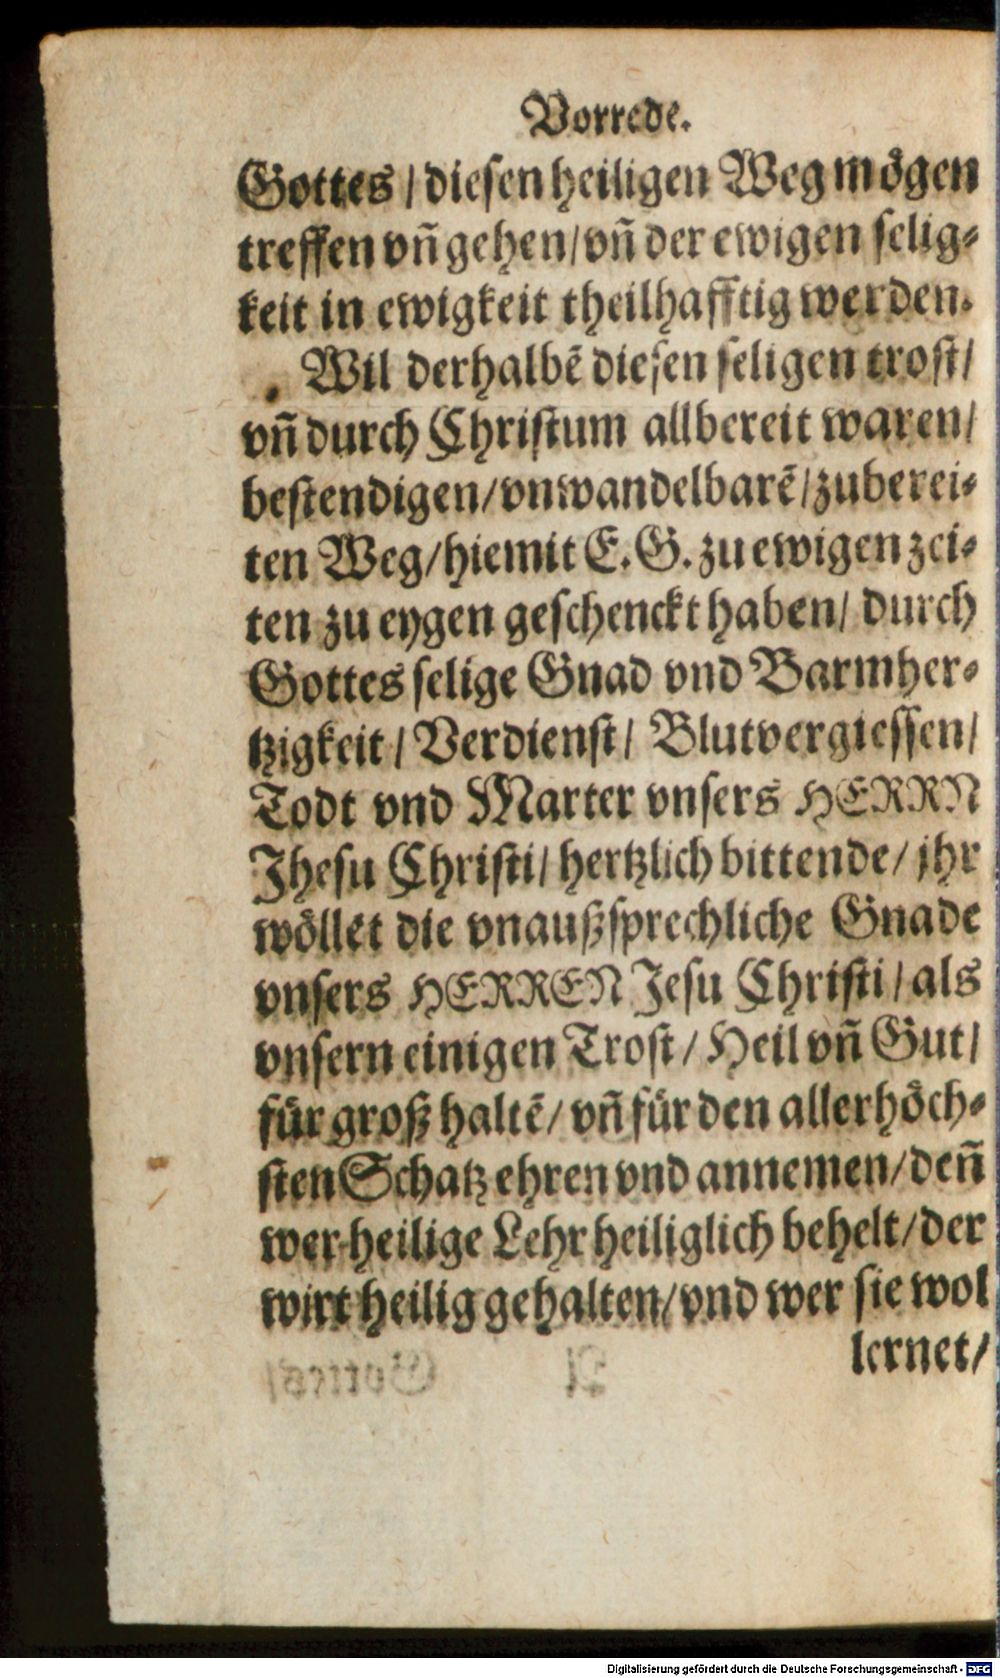 Vorrede.
Gottes / diesen heiligen Weg mögen
treffen vñ gehen / vñ der ewigen selig-
keit in ewigkeit theilhafftig werden.
Wil derhalbẽ diesen seligen trost /
vñ durch Christum allbereit waren /
bestendigen / vnwandelbarẽ / zuberei-
ten Weg / hiemit E. G. zu ewigen zei-
ten zu eygen geschenckt haben / durch
Gottes selige Gnad vnd Barmher-
tzigkeit / Verdienst / Blutvergiessen /
Todt vnd Marter vnsers HERRN
Jhesu Christi / hertzlich bittende / jhr
wöllet die vnaußsprechliche Gnade
vnsers HERREN Jesu Christi / als
vnsern einigen Trost / Heil vñ Gut /
für groß haltẽ / vñ für den allerhöch-
sten Schatz ehren vnd annemen / deñ
wer heilige Lehr heiliglich behelt / der
wirt heilig gehalten / vnd wer sie wol
lernet /
Digitalisierung gefördert durch die Deutsche Forschungsgemeinschaft - DFG